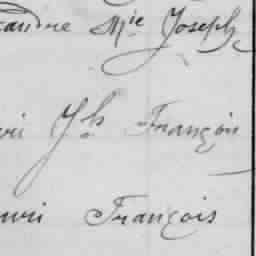 xandre Mie Joseph
nri Jh François
enri François